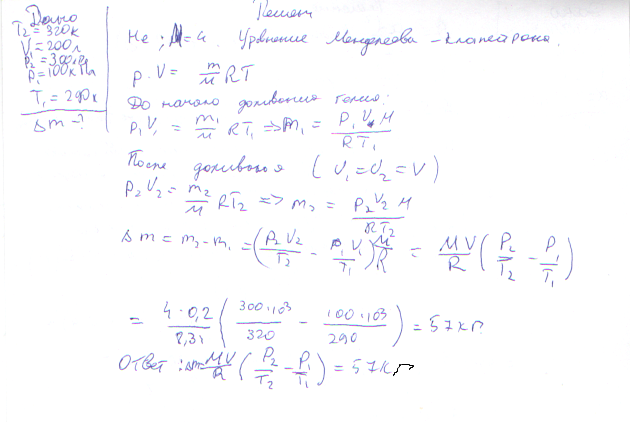 Дано
T₂=320К
V₁=200л
P₂=300кПа
P₁=100кПа
T₁=290К
Δm-?
Решен
He; M=4. Урвнение Менделеева-Клапейрона.
p·V= m/M RT
До начало доливания гелия:
P₁V₁ = m₁/M RT₁ => m₁ = P₁V₁M/RT₁
После доливанья (V₁=V₂=V)
P₂V₂= m₂/M RT₂ => m₂ = P₂V₂M/RT₂
Δm = m₂-m₁ =(P₂V₂/T₂ - P₁V₁/T₁)M/R = MV/R (P₂/T₂ - P₁/T₁)
= 4·0,2/8,31 (300·10³/320 - 100·10³/290) = 57кг
Ответ: Δm=MV/R (P₂/T₂ - P₁/T₁) = 57кг